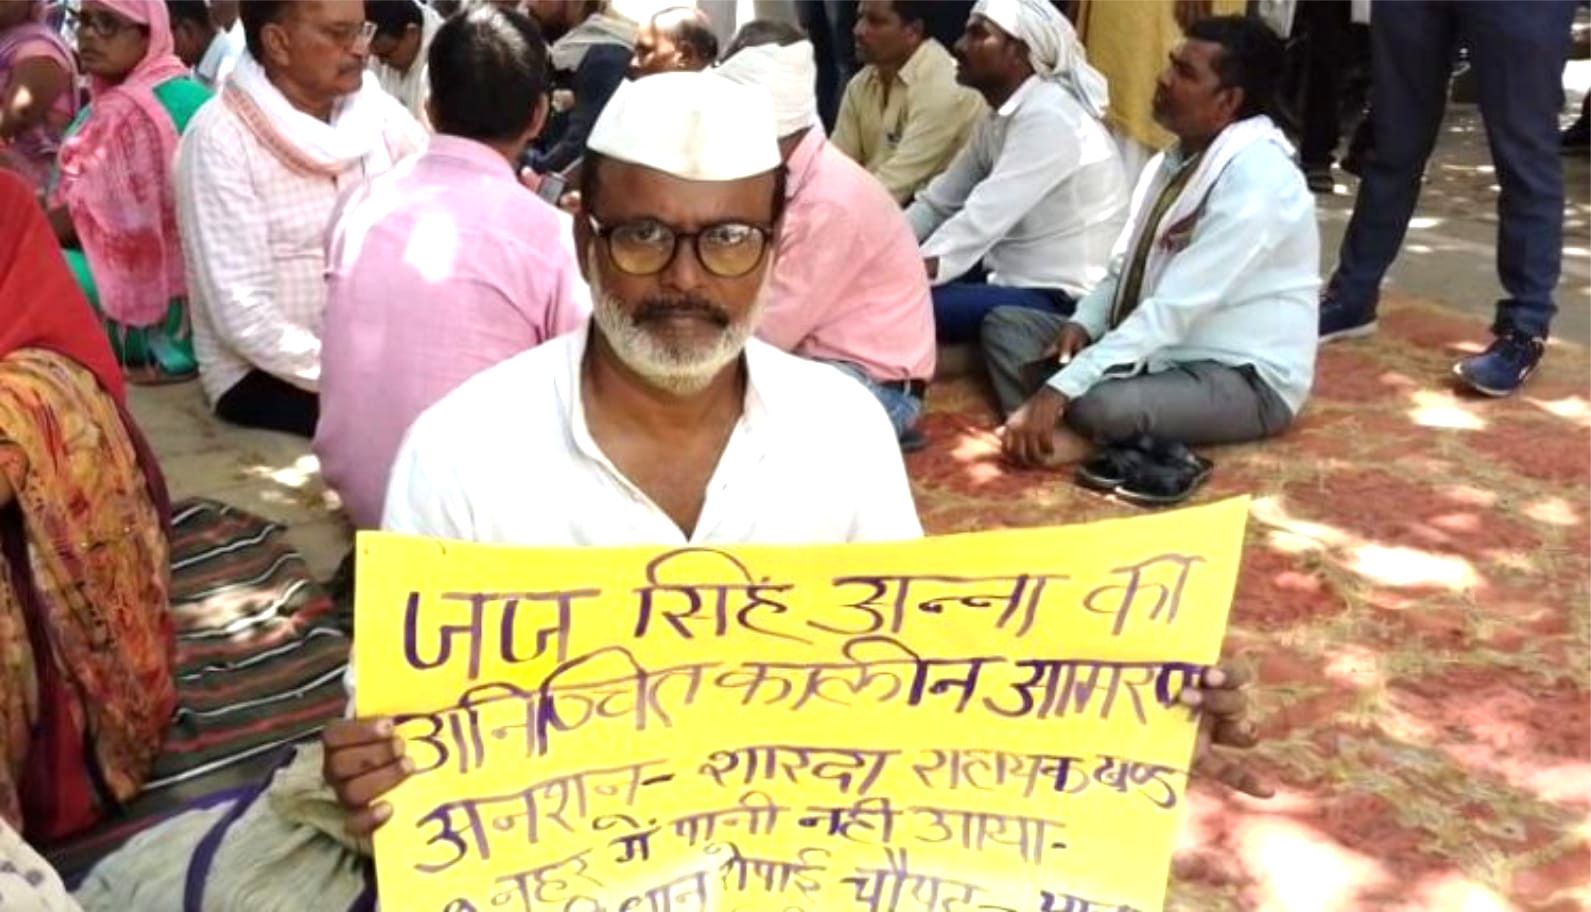 जज सिंह अन्ना की
अनिश्चित कालीन आमरण
अनशन- शारदा सहायक खण्ड
नहर में पानी नहीं आया-
धान रोपाई चौपट-